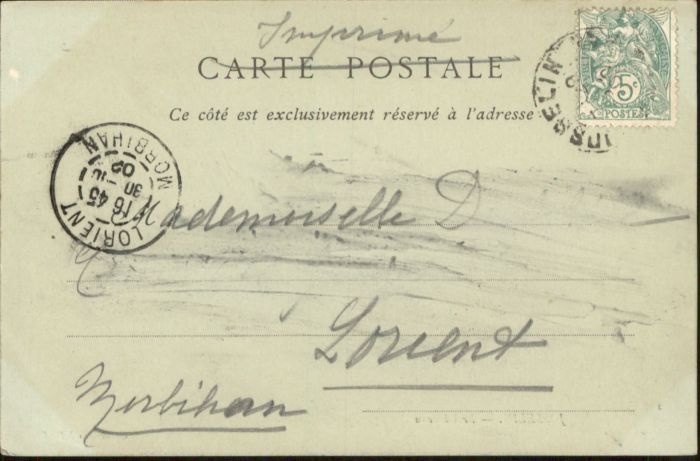 Imprimé
CARTE POSTALE
Ce côté est exclusivement réservé à l'adresse
5c
POSTES
LORIENT
16 45
30
02
MORBIHAN
Mademoiselle D
Lorient
Morbihan